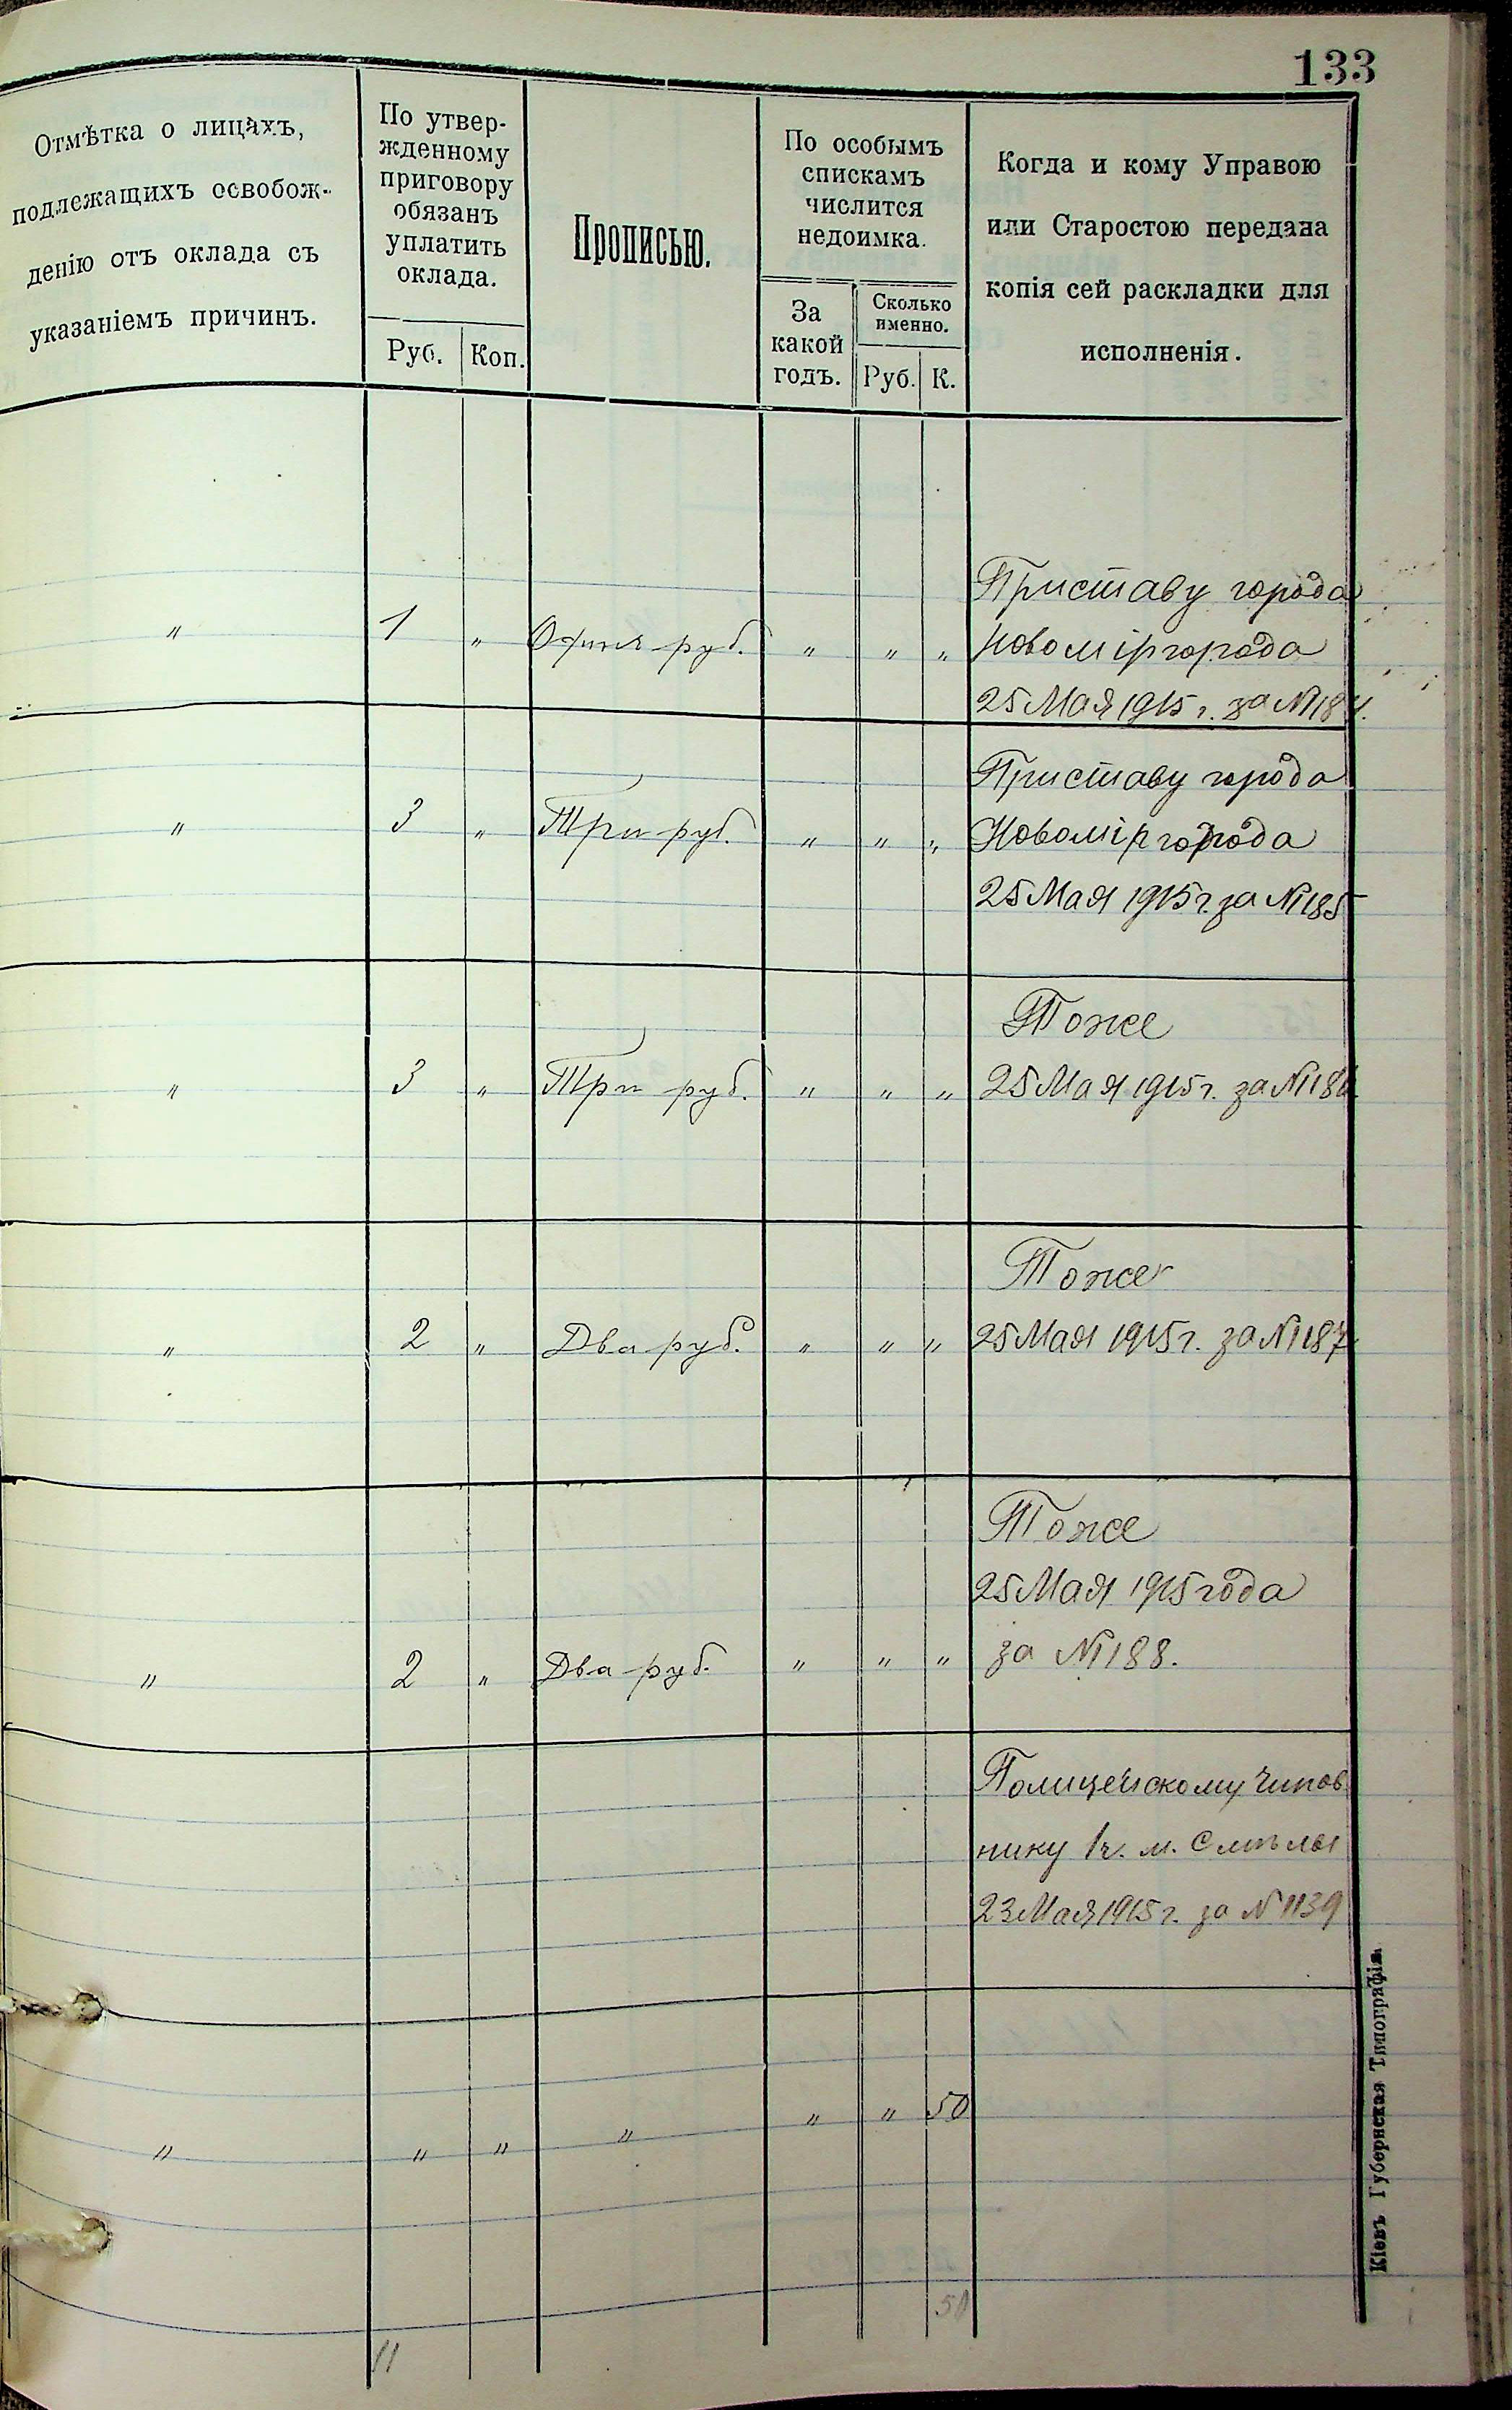 133
Отмѣтка о лицахъ,
подлежащихъ освобож-
денію отъ оклада съ
указаніемъ причинъ.
По утвер-
жденному
приговору
обязанъ
уплатить
оклада.
Руб.
Коп.
Прописью.
По особымъ
спискамъ
числится
недоимка.
За
какой
годъ.
Сколько
именно.
Руб.
К.
Когда и кому Управою
или Старостою передана
копія сей раскладки для
исполненія.
Приставу города
" 1 " Одинъ руб. " " " Новоміргорода
25 Мая 1915 г. за № 1184.
Приставу города
" 3 " Три руб. " " " Новоміргорода
25 Мая 1915 г. за № 1185
Тоже
" 3 " Три руб. " " " 25 Мая 1915 г. за № 1186
Тоже
" 2 " Два руб. " " " 25 Мая 1915 г. за № 1187
Тоже
25 Мая 1915 года
" 2 " Два руб. " " " за № 1188.
Полицейскому Чинов
нику 1 ч. м. Смѣлы
23 Мая 1915 г. за № 1139
" " " " " " 50
50
11
Кіевъ Губернская Типографія.